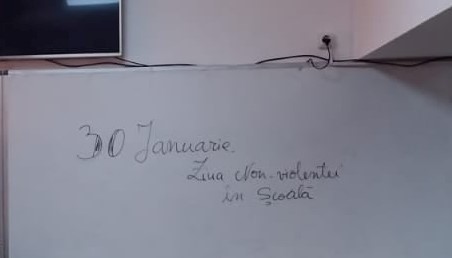 30 Ianuarie.
Ziua Non-violentei
în Școală